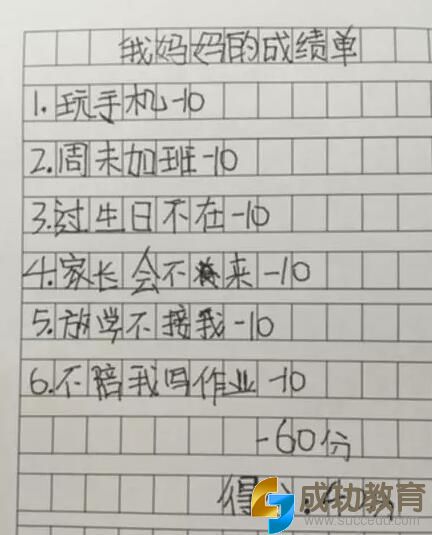 我妈妈的成绩单
1.玩手机-10
2.周未加班-10
3.过生日不在-10
4.家长会不来-10
5.放学不接我-10
6.不陪我写作业-10
-60份
得
成功教育
www.succedu.com